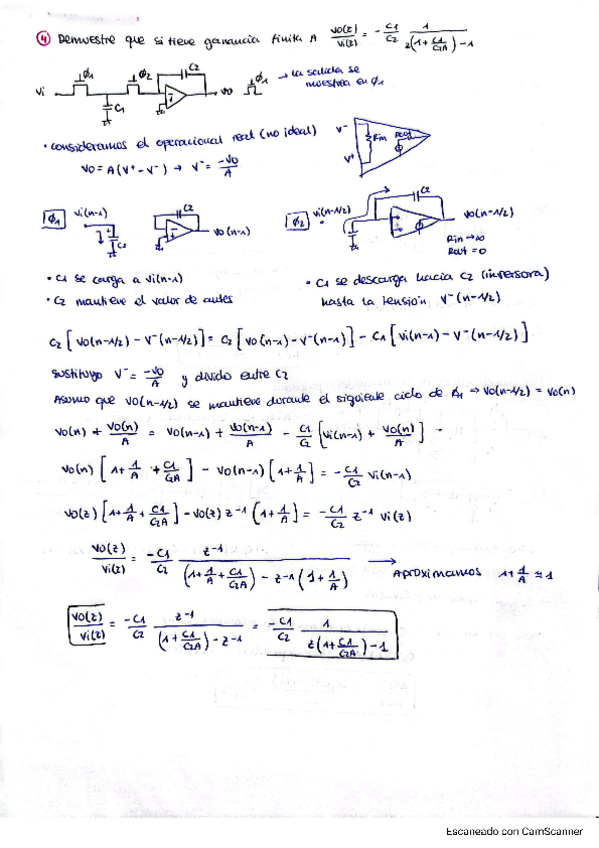 ④ Demuestre que si tiene ganancia finita A Vo(z)/Vi(z) = - C1/C2 1/(z(1+C1/C2A)-1)
Vi ϕ1 C1 ϕ2 C2 Vo ϕ1 → la salida se
muestrea en ϕ1
• consideramos el operacional real (no ideal)
Vo = A(V+ - V-) → V- = -Vo/A
V- V+ Rin Rout
ϕ1 Vi(n-1) C2 Vo(n-1)
ϕ2 Vi(n-1/2) C2 Vo(n-1/2)
Rin → ∞
Rout = 0
• C1 se carga a Vi(n-1)
• C2 mantiene el valor de antes
• C1 se descarga hacia C2 (inversora)
hasta la tensión V-(n-1/2)
C2[Vo(n-1/2) - V-(n-1/2)] = C2[Vo(n-1) - V-(n-1)] - C1[Vi(n-1) - V-(n-1/2)]
sustituyo V- = -Vo/A y divido entre C2
Asumo que Vo(n-1/2) se mantiene durante el siguiente ciclo de ϕ1 ⇒ Vo(n-1/2) = Vo(n)
Vo(n) + Vo(n)/A = Vo(n-1) + Vo(n-1)/A - C1/C2 [Vi(n-1) + Vo(n)/A]
Vo(n)[1+1/A+C1/C2A] - Vo(n-1)[1+1/A] = -C1/C2 Vi(n-1)
Vo(z)[1+1/A+C1/C2A] - Vo(z) z-1 (1+1/A) = -C1/C2 z-1 Vi(z)
Vo(z)/Vi(z) = -C1/C2 z-1/((1+1/A+C1/C2A) - z-1(1+1/A)) → Aproximamos 1+1/A ≅ 1
Vo(z)/Vi(z) = -C1/C2 z-1/((1+C1/C2A) - z-1) = -C1/C2 1/(z(1+C1/C2A)-1)
Escaneado con CamScanner